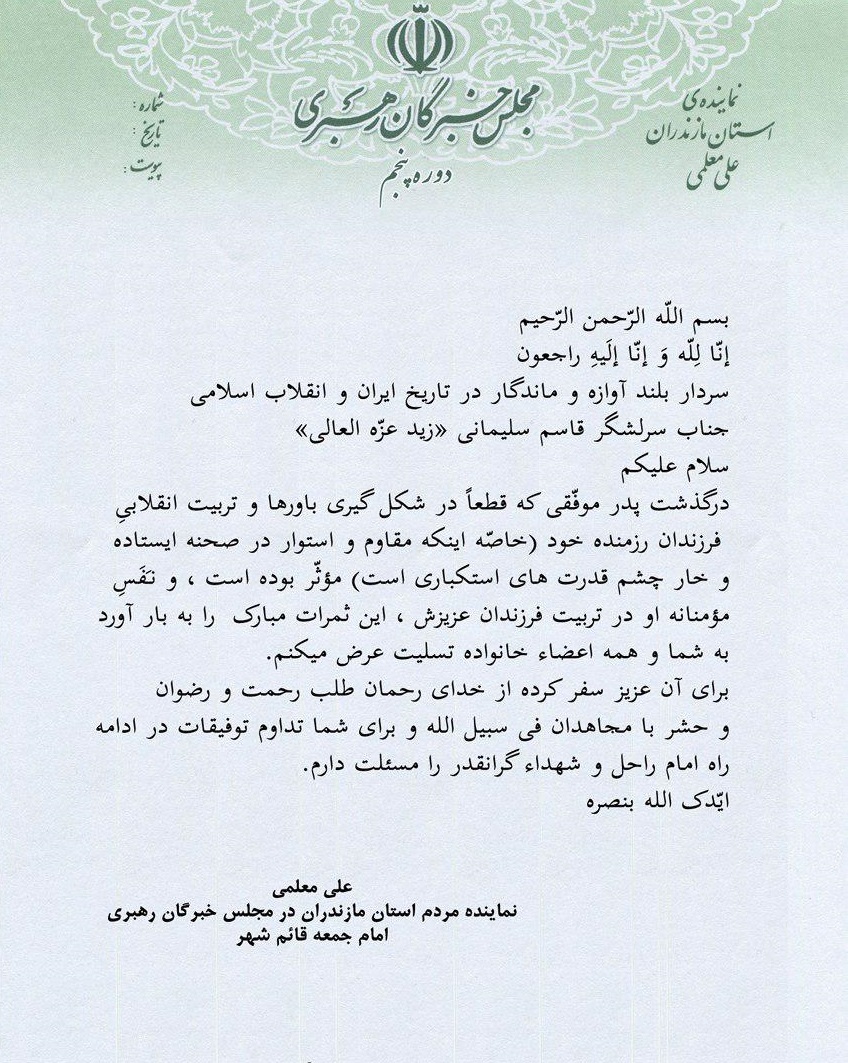 مجلس خبرگان رهبری
دوره پنجم
نماینده‌ی
استان مازندران
علی معلمی
شماره :
تاریخ :
پیوست :
بسم اللّه الرّحمن الرّحیم
إنّا لِلّه وَ إنّا إلَیهِ راجعون
سردار بلند آوازه و ماندگار در تاریخ ایران و انقلاب اسلامی
جناب سرلشگر قاسم سلیمانی «زید عزّه العالی»
سلام علیکم
درگذشت پدر موفّقی که قطعاً در شکل گیری باورها و تربیت انقلابیِ
فرزندان رزمنده خود (خاصّه اینکه مقاوم و استوار در صحنه ایستاده
و خار چشم قدرت های استکباری است) مؤثّر بوده است ، و نَفَسِ
مؤمنانه او در تربیت فرزندان عزیزش ، این ثمرات مبارک را به بار آورد
به شما و همه اعضاء خانواده تسلیت عرض میکنم.
برای آن عزیز سفر کرده از خدای رحمان طلب رحمت و رضوان
و حشر با مجاهدان فی سبیل الله و برای شما تداوم توفیقات در ادامه
راه امام راحل و شهداء گرانقدر را مسئلت دارم.
ایّدک الله بنصره
علی معلمی
نماینده مردم استان مازندران در مجلس خبرگان رهبری
امام جمعه قائم شهر